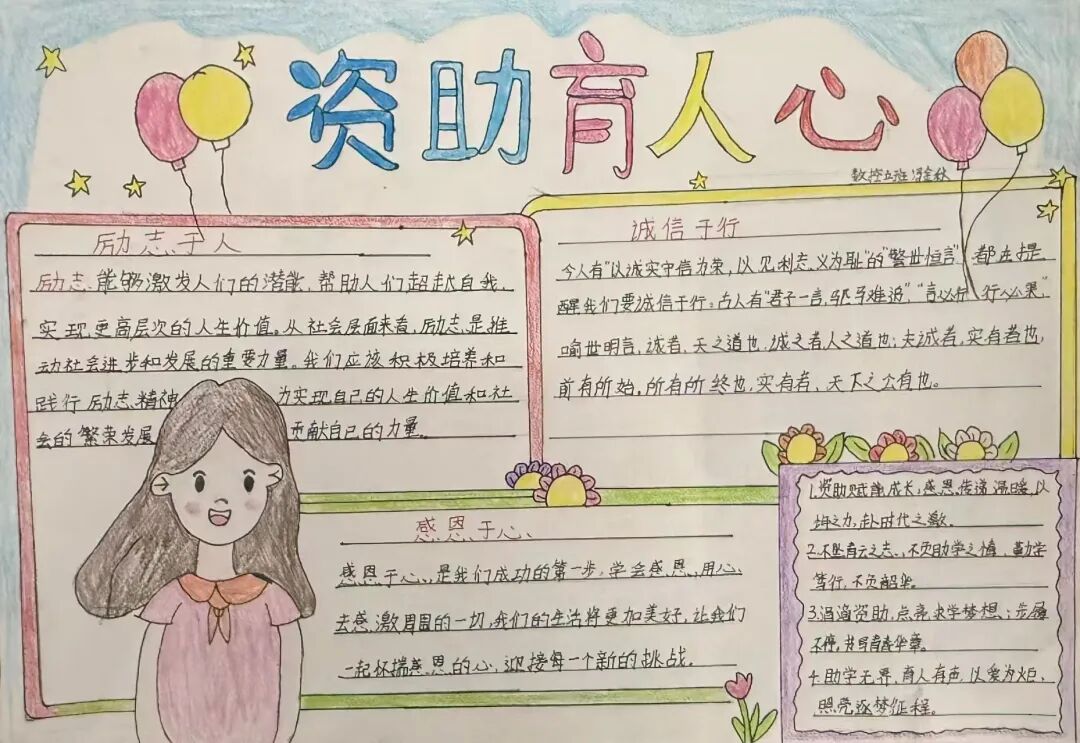 资助育人心
数控五班 冯金秋
励志于人
励志能够激发人们的潜能，帮助人们超越自我，
实现更高层次的人生价值。从社会层面来看，励志是推
动社会进步和发展的重要力量。我们应该积极培养和
践行励志精神 为实现自己的人生价值和社
会的繁荣发展 贡献自己的力量。
诚信于行
今人有"以诚实守信为荣，以见利忘义为耻"的"警世恒言"，都在提
醒我们要诚信于行；古人有"君子一言，驷马难追"，"言必行，行必果"，
喻世明言，诚者，天之道也，诚之者人之道也；夫诚者，实有者也，
前有所始，所有所终也，实有者、天下之公有也。
感恩于心
感恩于心，是我们成功的第一步，学会感恩，用心
去感激周围的一切，我们的生活将更加美好，让我们
一起怀揣感恩的心，迎接每一个新的挑战。
1.资助赋能成长，感恩传递温暖，以
之力，赴时代之邀。
2.不坠青云之志，不负助学之情，勤学
笃行，不负韶华。
3.涓涓资助，点亮求学梦想；步履
不停，书写青春华章。
4.助学无界，育人有声，以爱为炬，
照亮逐梦征程。